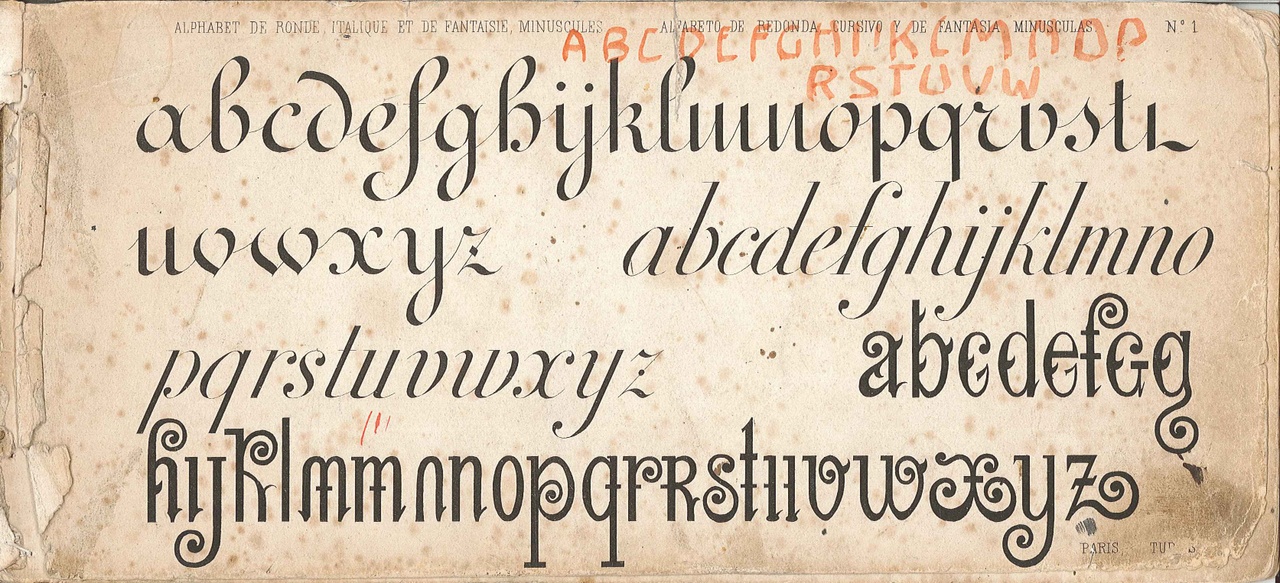 ALPHABET DE RONDE, ITALIQUE ET DE FANTAISIE, MINUSCULES ALFABETO DE REDONDA, CURSIVO Y DE FANTASIA, MINUSCULAS N.º 1
ABCDEFGHIJKLMNOP
RSTUVW
abcdefghijklmnopqrvstt
uvwxyz abcdefghijklmno
pqrstuvwxyz abcdefGg
hijklmmnnopqrRstuvwxyz
PARIS,